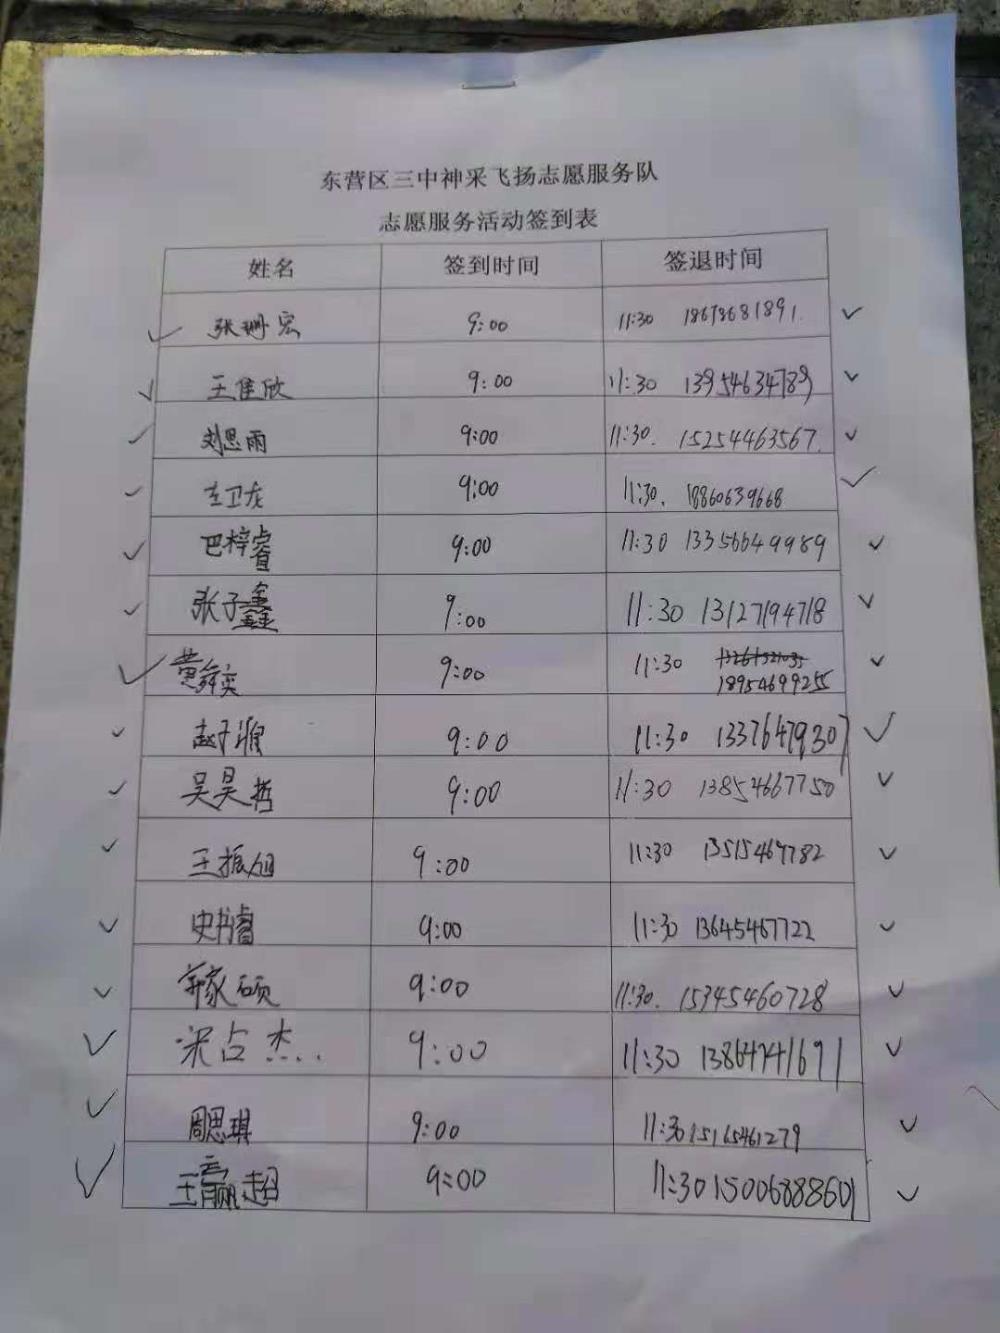 东营区三中神采飞扬志愿服务队
志愿服务活动签到表
姓名 签到时间 签退时间
张珊宏 9:00 11:30 18678681891
王佳欣 9:00 11:30 13954634789
刘思雨 9:00 11:30. 15254463567
9:00 11:30. 18860639668
巴梓睿 9:00 11:30 13356649989
张子鑫 9:00 11:30 13127194718
黄舜奕 9:00 11:30 18954699255
赵子淮 9:00 11:30 13376479307
吴昊哲 9:00 11:30 13854667750
王振旭 9:00 11:30 13515467782
史书睿 9:00 11:30 13645467722
9:00 11:30. 15345460728
宋占杰.. 9:00 11:30 13864741691
周思琪 9:00 11:30 15165461279
王赢超 9:00 11:30 15006888601